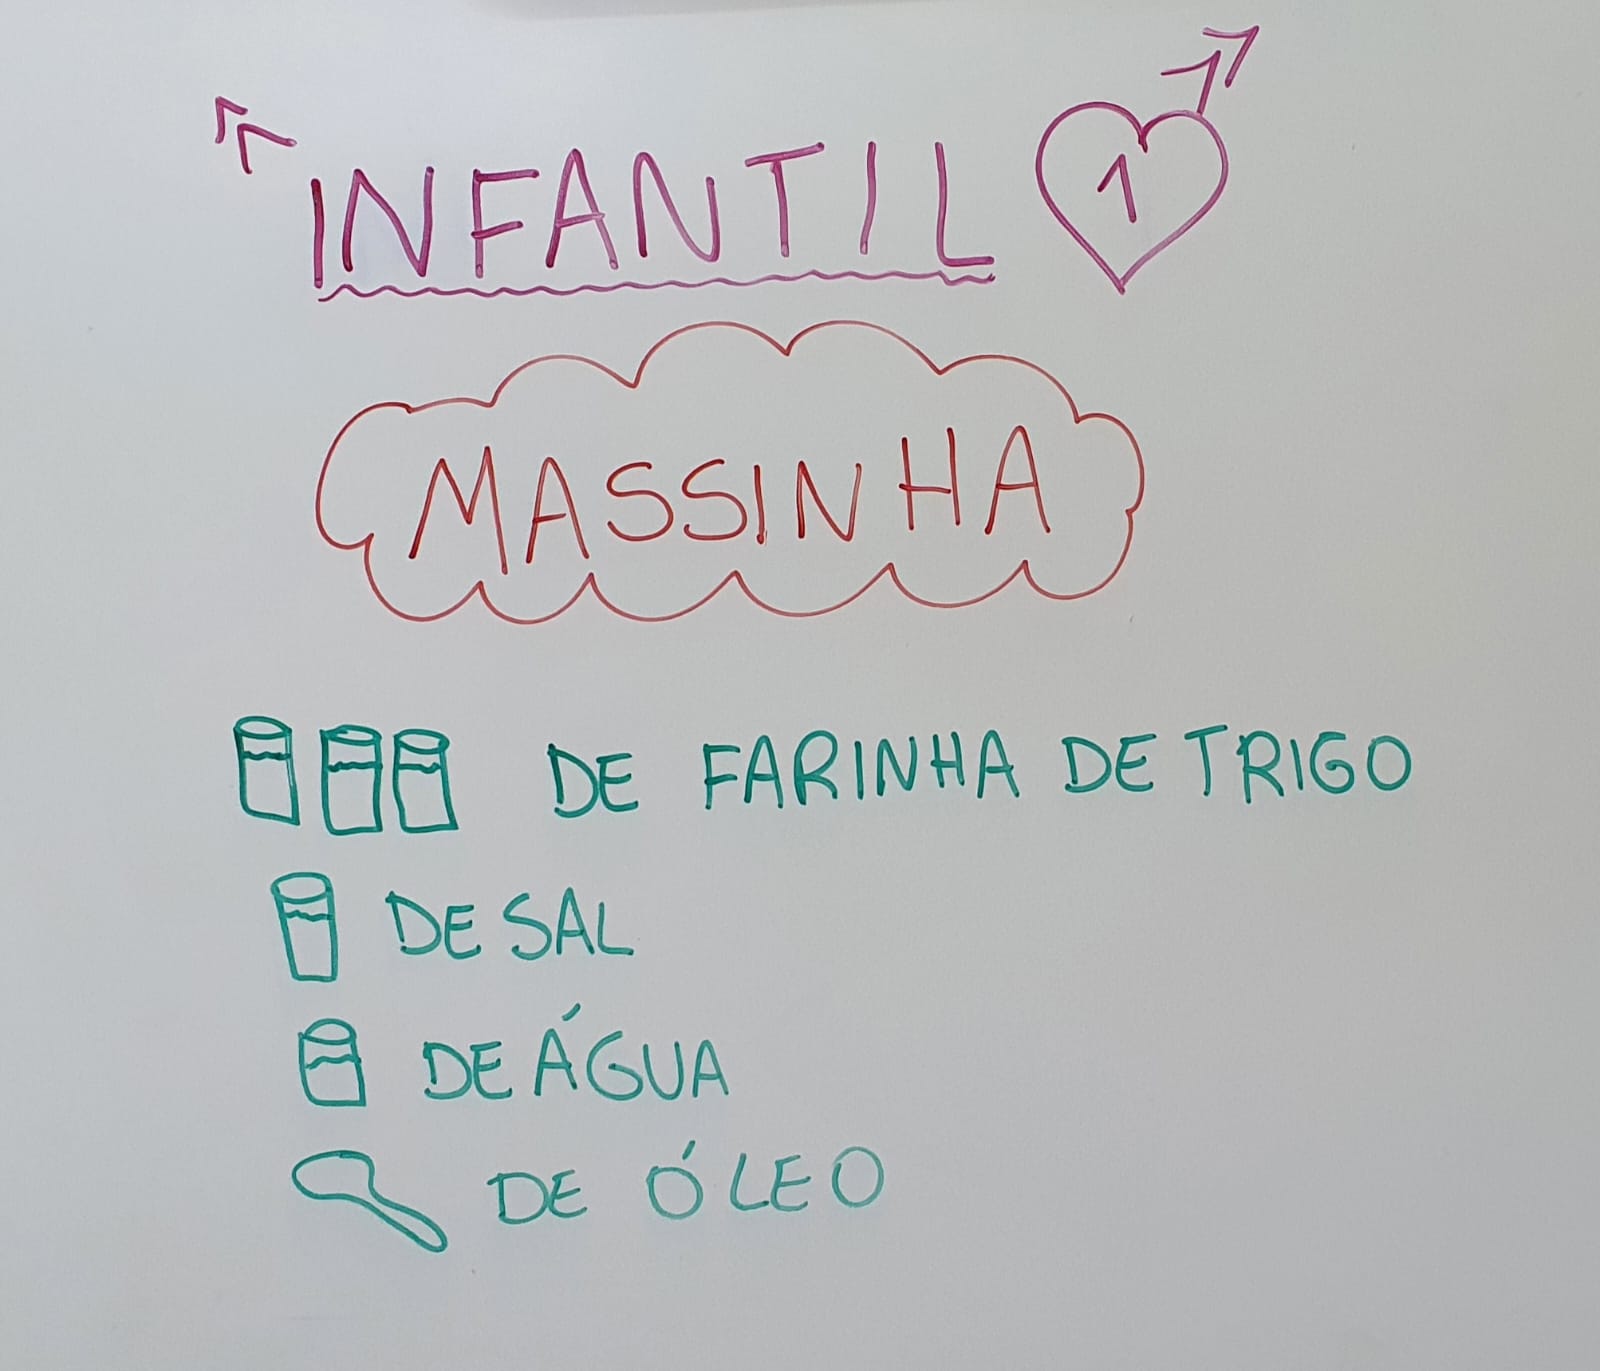 INFANTIL 1
MASSINHA
DE FARINHA DE TRIGO
DE SAL
DE ÁGUA
DE ÓLEO